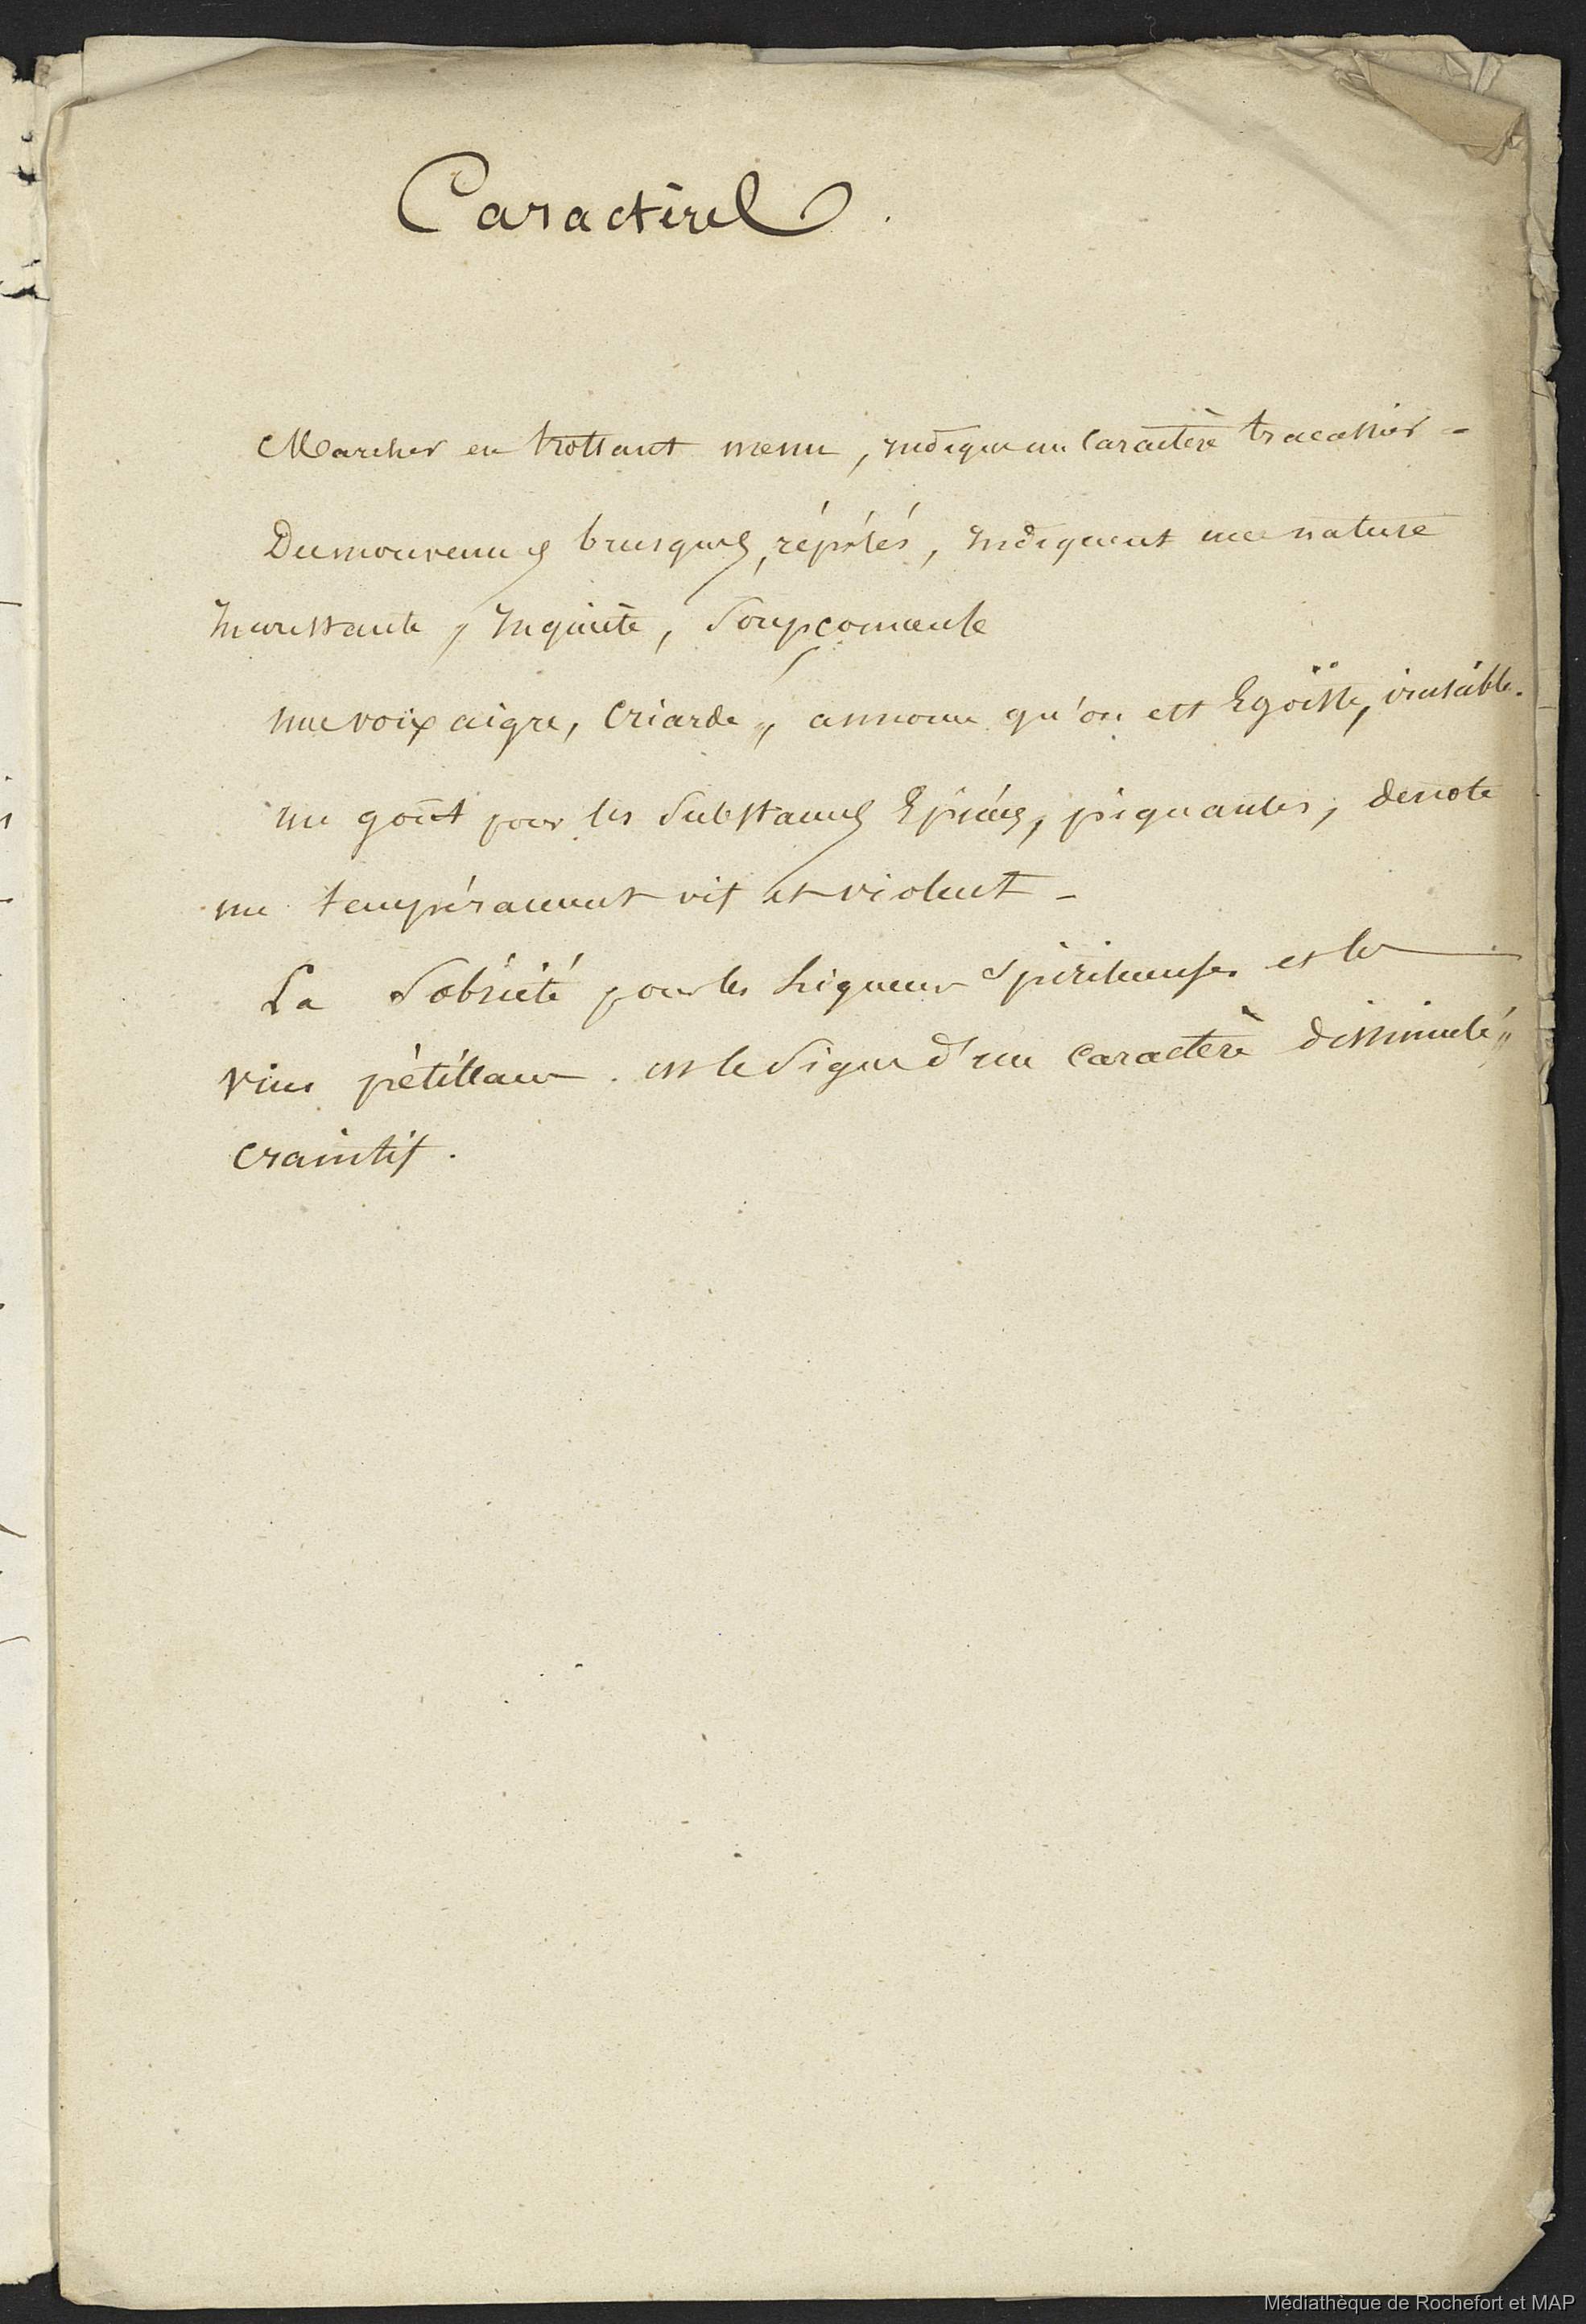 Caractères.
Marcher en trottant menu, indique un Caractère tracassier -
Des mouvements brusques, répétés, indiquent une nature
inconstante, inquiète, soupçonneuse
une voix aigre, criarde, annonce qu'on est Egoïste, irascible.
un goût pour les Substances Epicées, piquantes, denote
un tempérament vif et violent -
La Sobriété pour les liqueurs Spiritueuses et les
vins pétillans. est le Signe d'un caractère dissimulé,
craintif.
Médiathèque de Rochefort et MAP